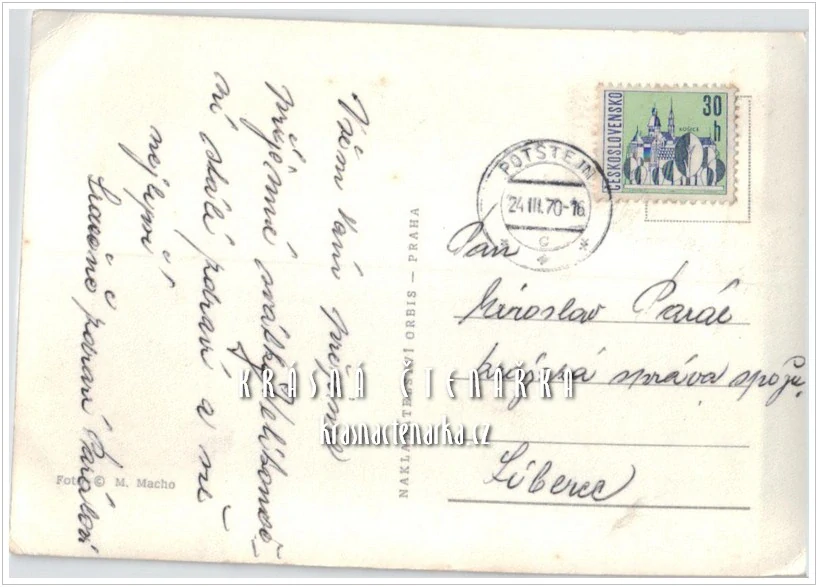 Všem Vám příjemné
příjemná svátky velikonoč-
ní stálé zdraví a vše
nejlepší
Srdečně zdraví Paralovi
Foto © M. Macho
NAKLADATELSTVÍ ORBIS — PRAHA
ČESKOSLOVENSKO
30 h
POTŠTEJN
24.III.70-16
c
Pan
Miroslav Parál
krajská správa spojů
Liberec
KRÁSNÁ ČTENÁŘKA
krasnactenarka.cz